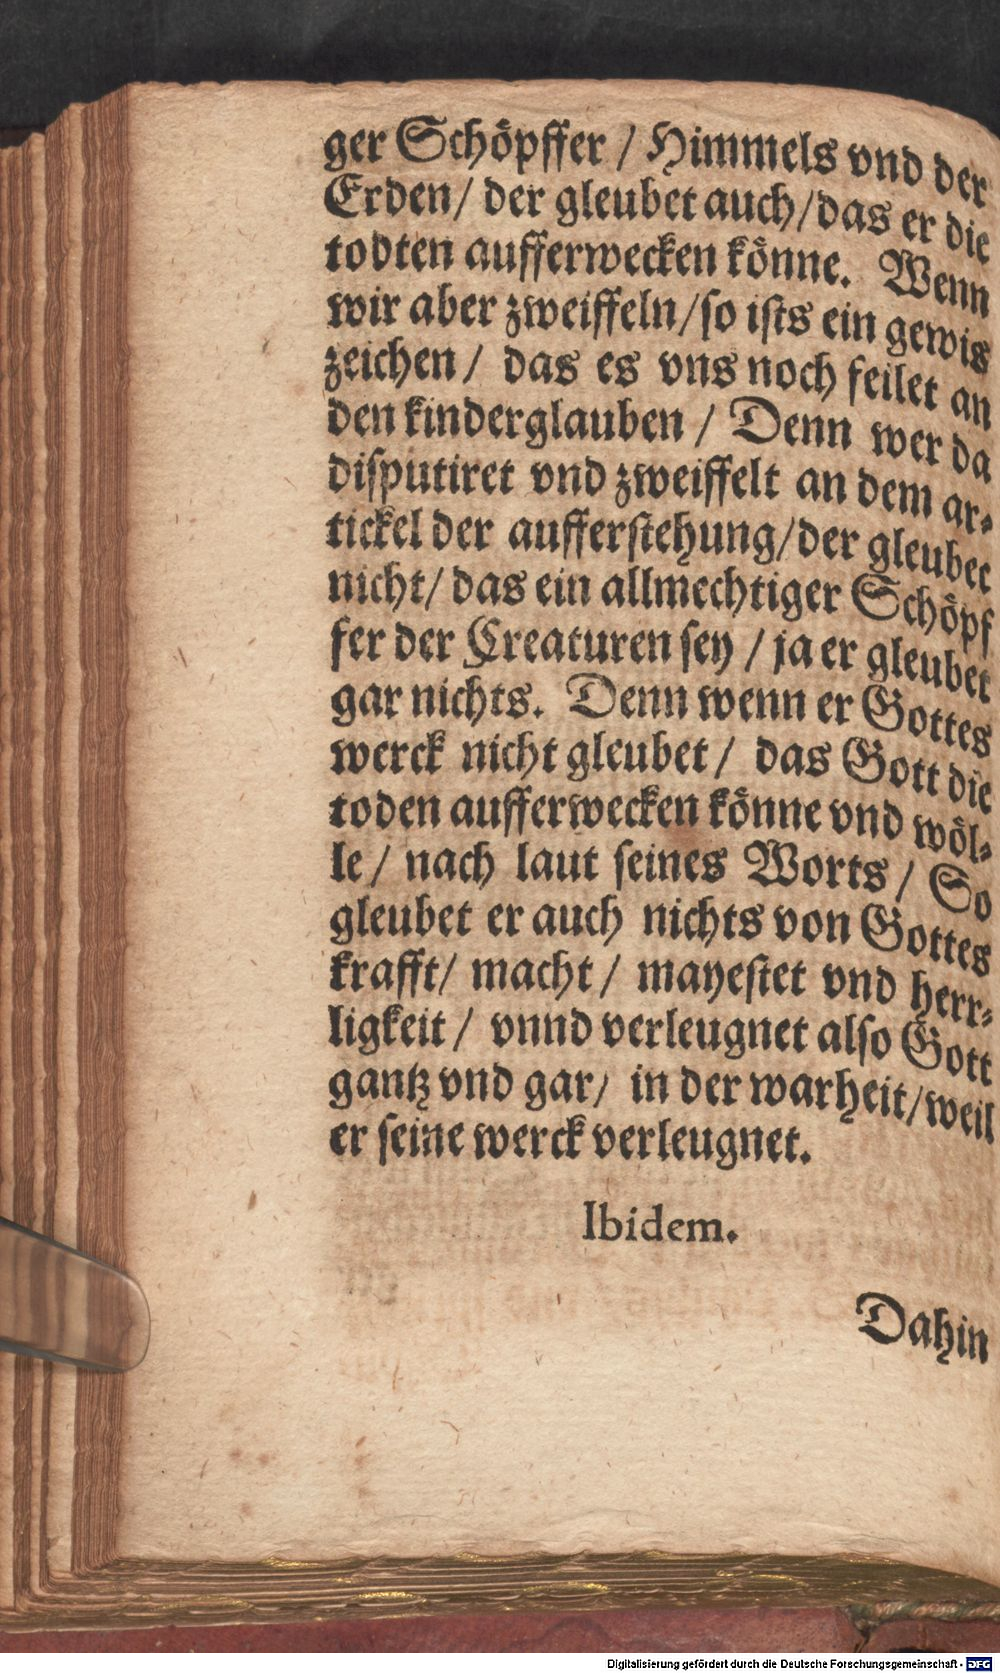 ger Schöpffer / Himmels vnd der
Erden / der gleubet auch / das er die
todten aufferwecken könne. Wenn
wir aber zweiffeln / so ists ein gewis
zeichen / das es vns noch feilet an
den kinderglauben / Denn wer da
disputiret vnd zweiffelt an dem ar-
tickel der aufferstehung / der gleubet
nicht / das ein allmechtiger Schöpf
fer der Creaturen sey / ja er gleubet
gar nichts. Denn wenn er Gottes
werck nicht gleubet / das Gott die
toden aufferwecken könne vnd wöl-
le / nach laut seines Worts / So
gleubet er auch nichts von Gottes
krafft / macht / mayestet vnd herr-
ligkeit / vnnd verleugnet also Gott
gantz vnd gar / in der warheit / weil
er seine werck verleugnet.
Ibidem.
Dahin
Digitalisierung gefördert durch die Deutsche Forschungsgemeinschaft - DFG